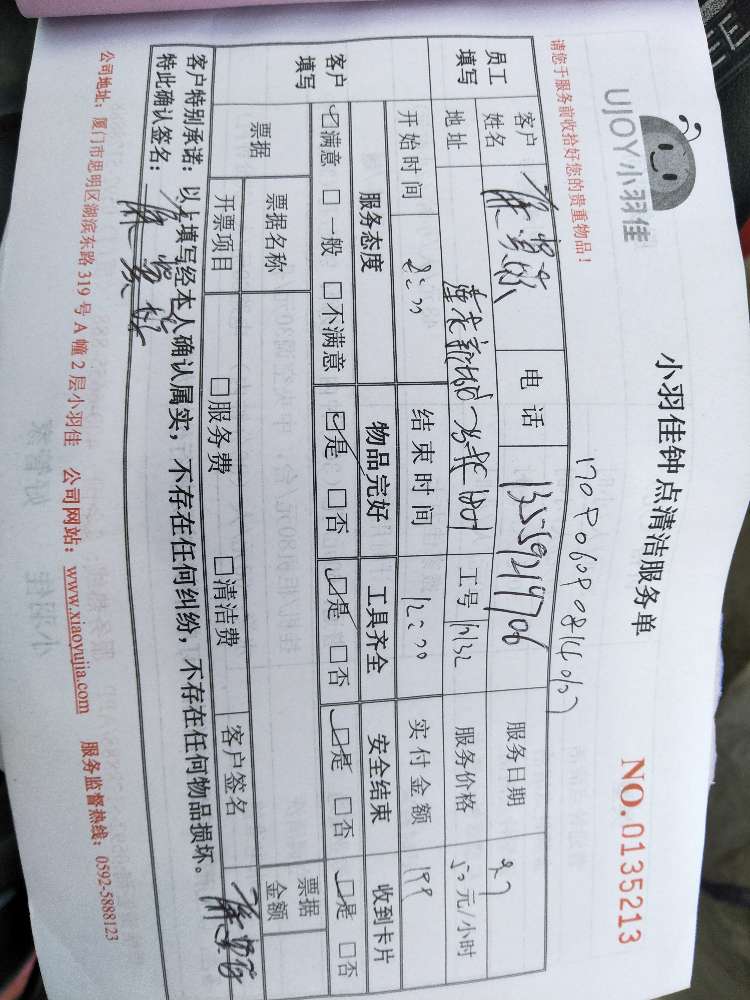 UJOY小羽佳
小羽佳钟点清洁服务单
NO.0135213
请您于服务前收拾好您的贵重物品！
1709060908140107
员工填写
客户姓名
电话 13559219706
服务日期 9.7
地址
工号
服务价格 50元/小时
开始时间 8:30
结束时间 12:30
实付金额 199
客户填写
服务态度 物品完好 工具齐全 安全结束 收到卡片
☑满意 □一般 □不满意 ☑是 □否 ☑是 □否 ☑是 □否 ☑是 □否
票据
票据名称
票据金额
开票项目 □服务费 □清洁费 客户签名
客户特别承诺：以上填写经本人确认属实，不存在任何纠纷，不存在任何物品损坏。
特此确认签名：
公司地址：厦门市思明区湖滨东路319号A幢2层小羽佳 公司网站：www.xiaoyujia.com 服务监督热线：0592-5888123